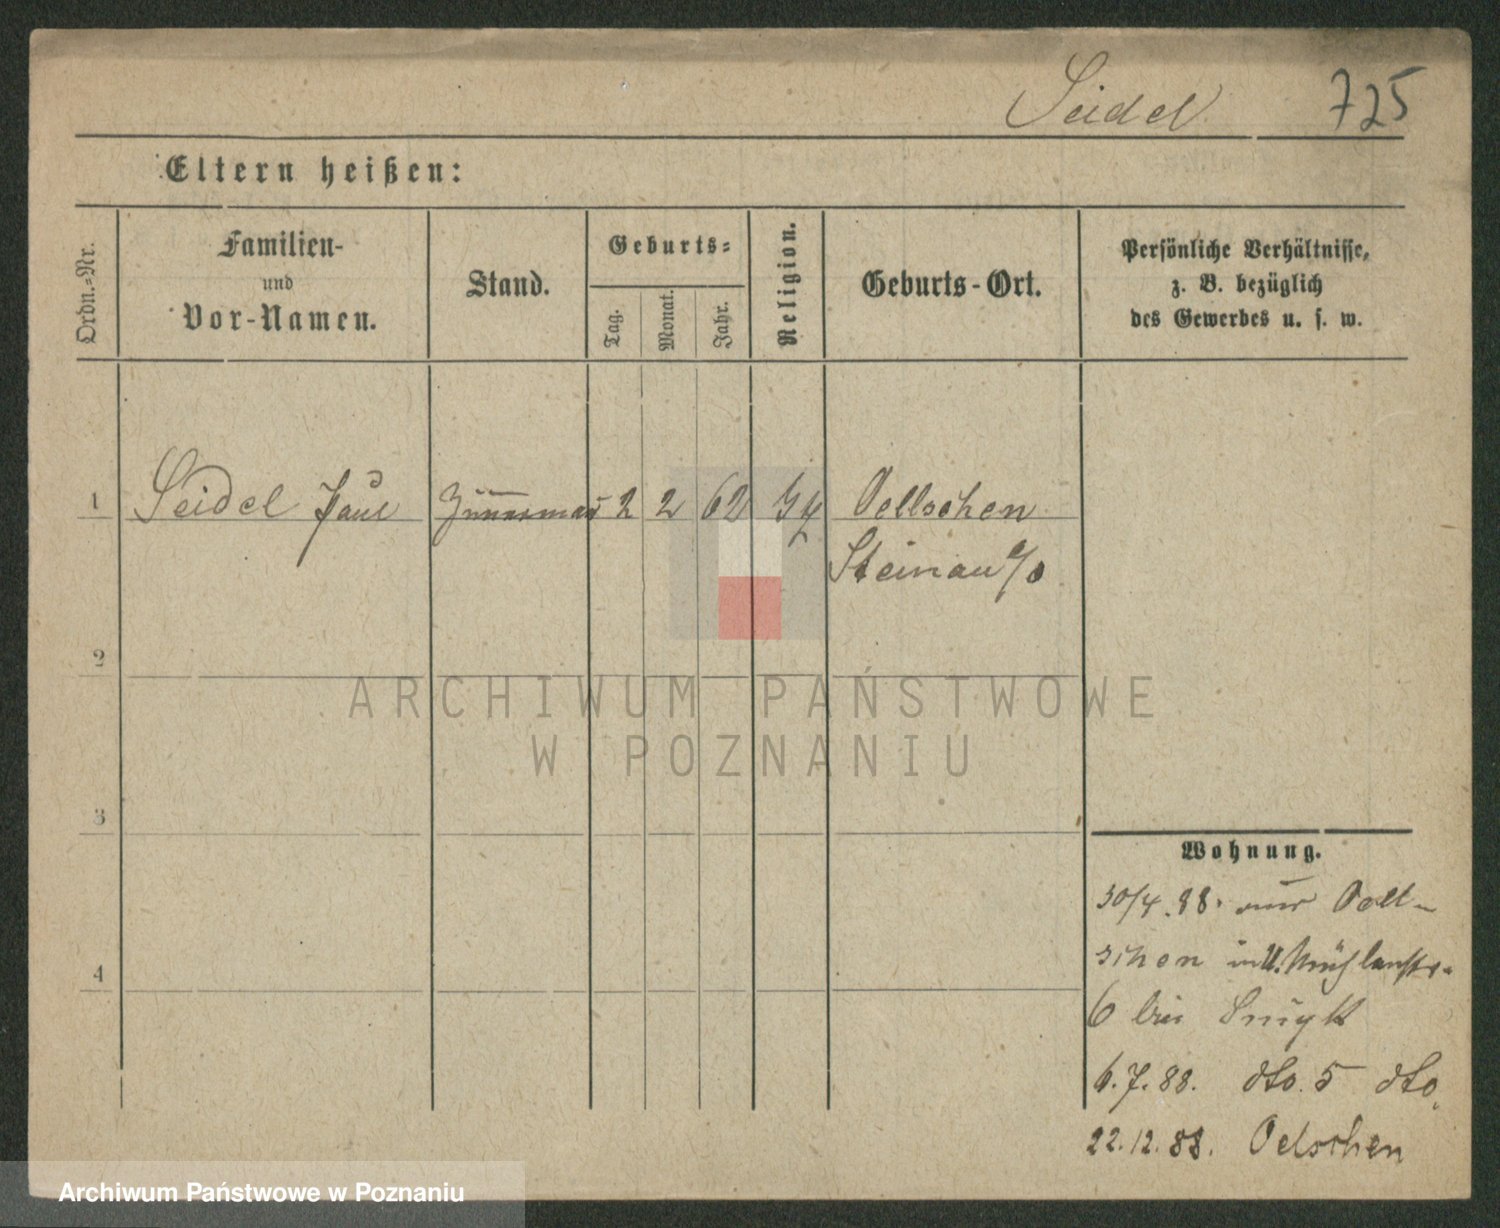 Seidel 725
Eltern heißen:
Ordn.-Nr.
Familien-
und
Vor-Namen.
Stand.
Geburts-
Tag.
Monat.
Jahr.
Religion.
Geburts-Ort.
Persönliche Verhältnisse,
z. B. bezüglich
des Gewerbes u. s. w.
1 Seidel Paul 2 2 62 Oellschen
Steinau a/o
2
3
4
ARCHIWUM PAŃSTWOWE
W POZNANIU
Wohnung.
30/4.88. Oelt-
schen in U. Mühlenstr.
6 bei
6.7.88. dto. 5 dto.
22.12.88. Oelschen
Archiwum Państwowe w Poznaniu